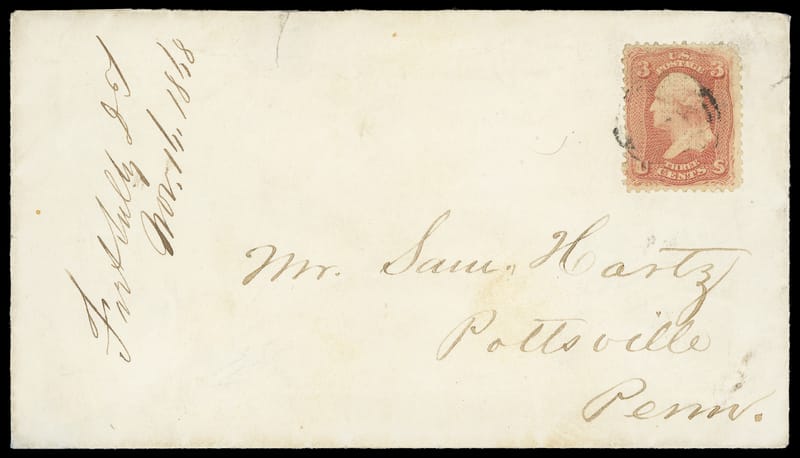 Fort Sully D T
Nov. 14, 1868
3 U S 3
POSTAGE
U THREE S
CENTS
Mr. Sam. Hartz
Pottsville
Penn.